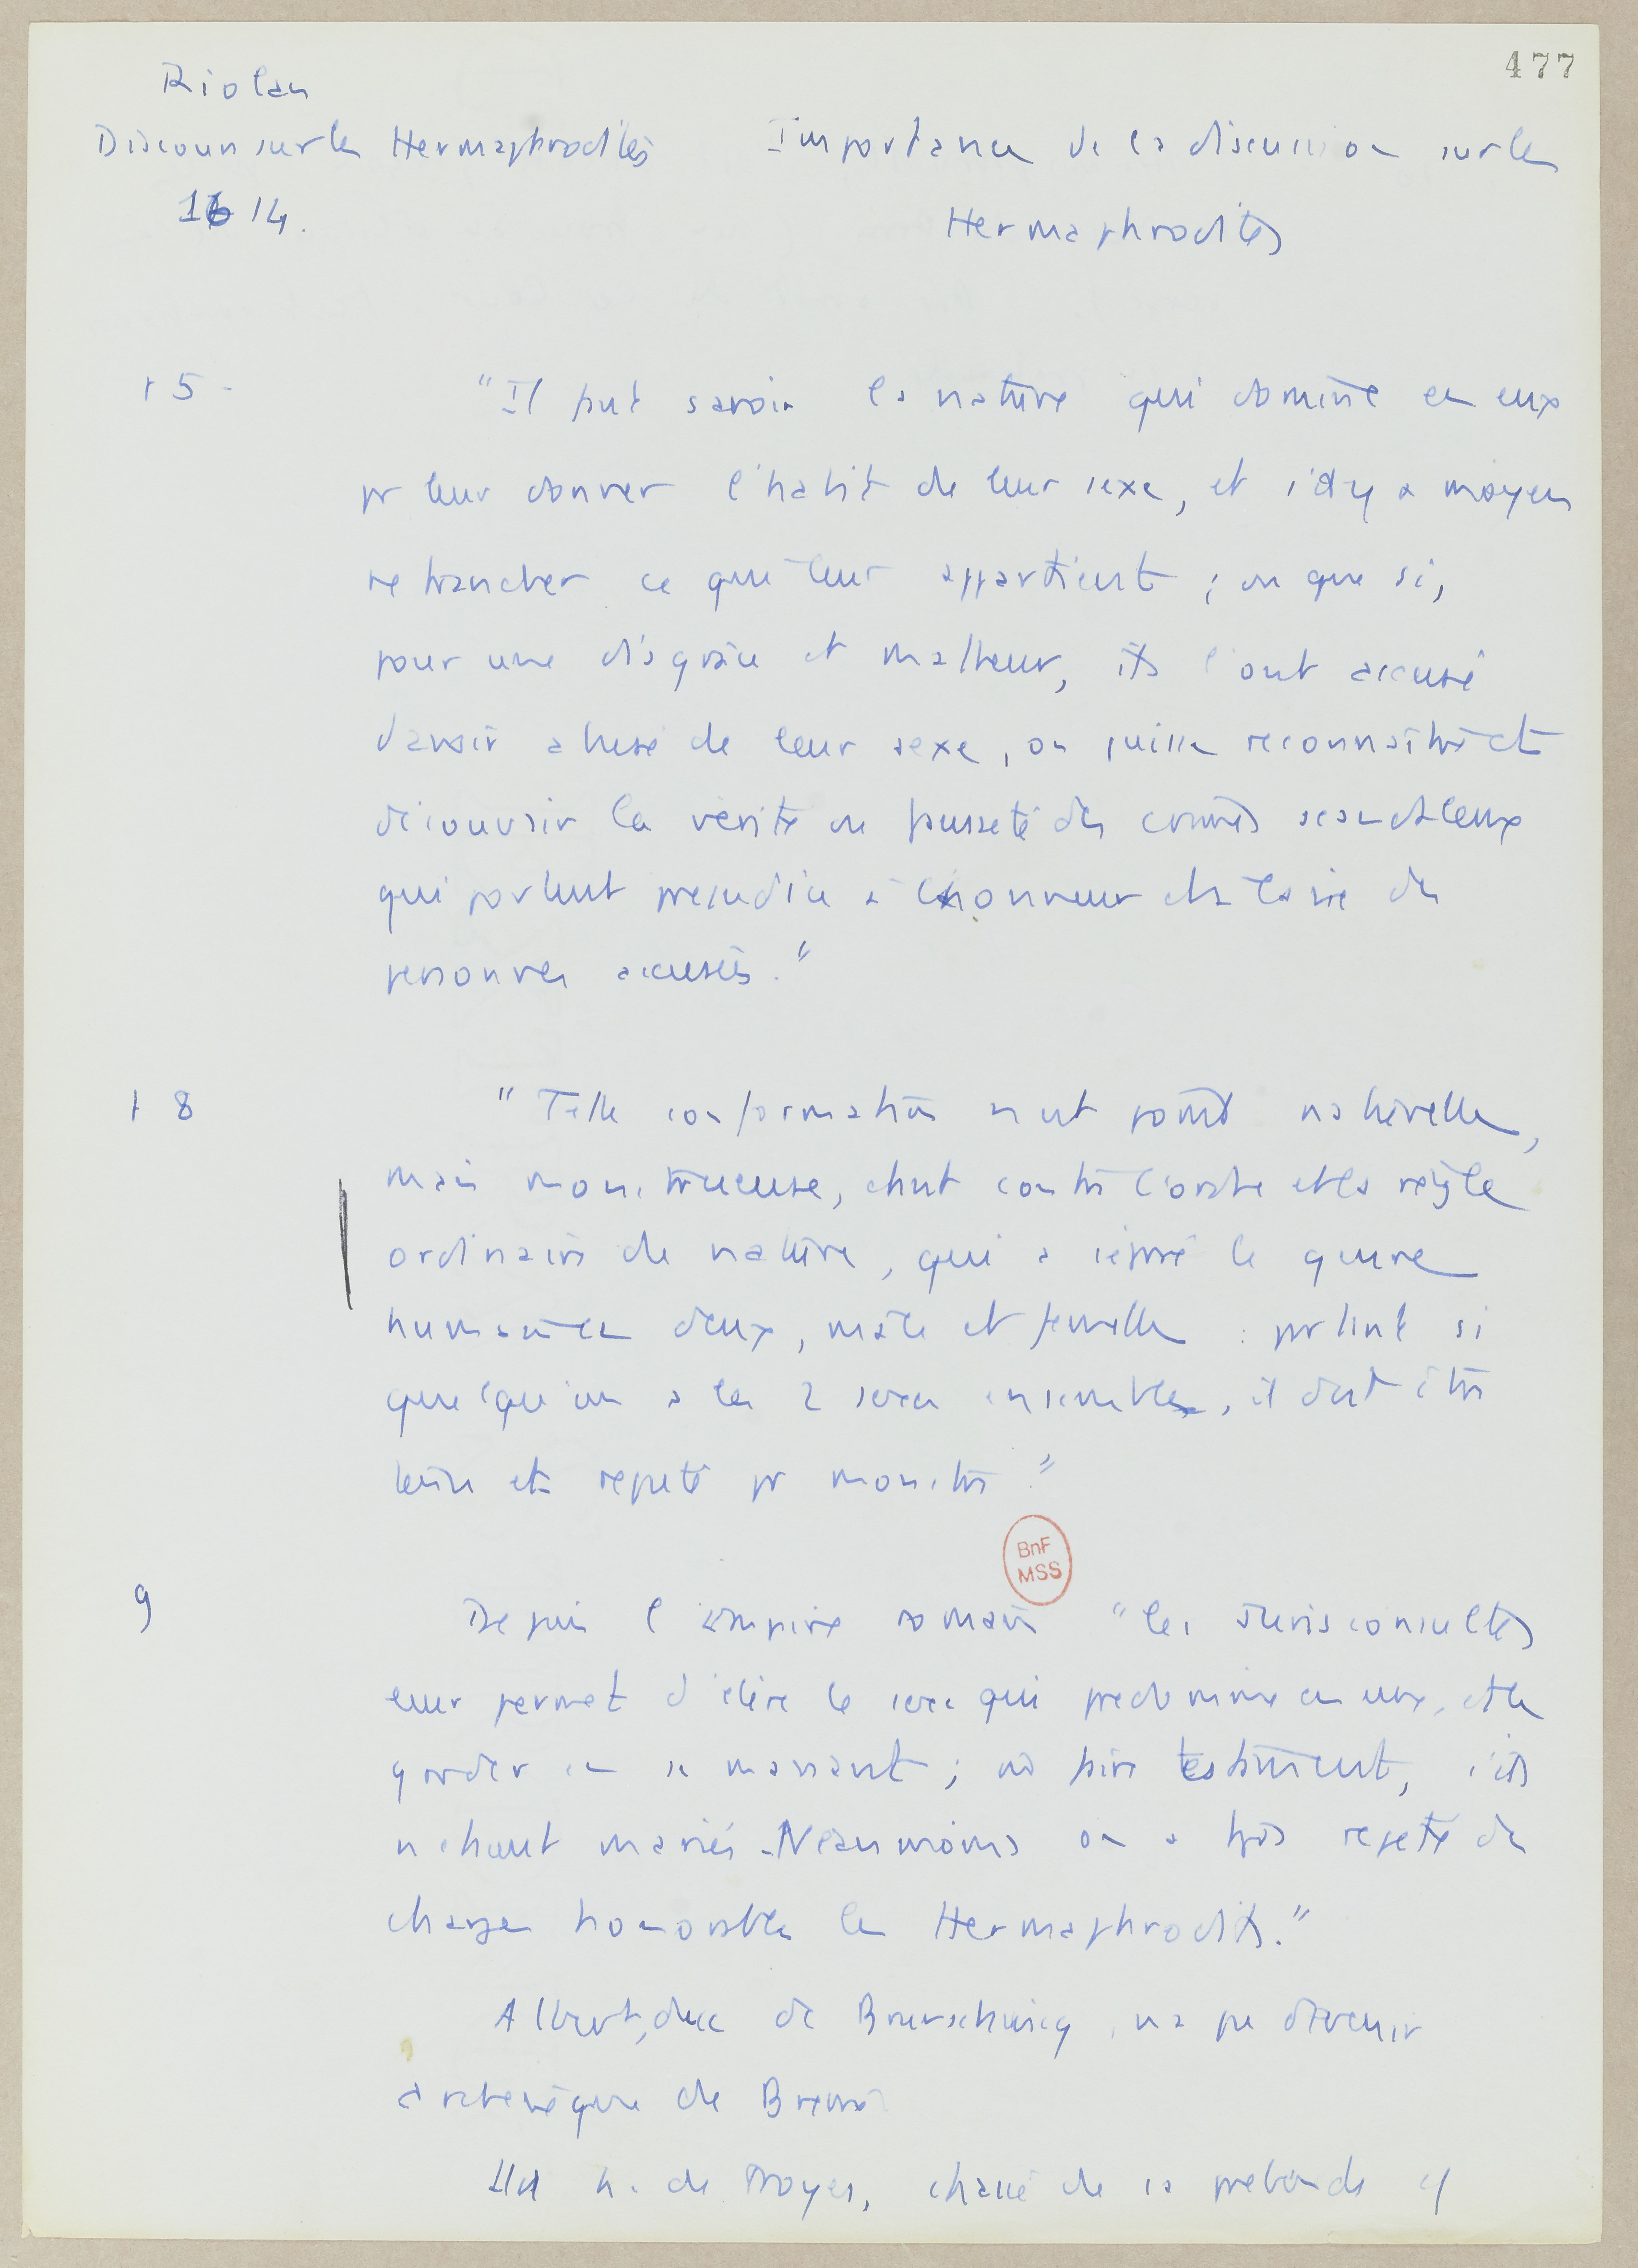 477
Riolan
Discours sur les Hermaphrodites
1614.
Importance de la discussion sur les
Hermaphrodites
p 5 -
"Il faut savoir la nature qui domine en eux
pr leur donner l'habit de leur sexe, et s'il y a moyen
retrancher ce qui leur appartient ; ou que si,
pour une disgrâce et malheur, ils l'ont accusé
d'avoir abusé de leur sexe, on puisse reconnaître et
découvrir la vérité ou fausseté des crimes scandaleux
qui portent préjudice à l'honneur et à la vie des
personnes accusées."
p 8
"Telle conformation n'est point naturelle,
mais monstrueuse, c'est contre l'ordre et la règle
ordinaire de nature, qui a séparé le genre
humain en deux, mâle et femelle : partant si
quelqu'un a les 2 sexes ensemble, il doit être
tenu et réputé pr monstre"
BnF
MSS
9
Depuis l'empire romain "les Jurisconsultes
leur permet d'élire le sexe qui prédomine en eux, et le
garder en se mariant ;
testament, s'ils
mariés. Néanmoins on a tjrs rejeté des
charges honorables les Hermaphrodites."
Albert, duc de Brunschwicg, n'a pu devenir
archevêque de Brême
Un h. de Troyes, chassé de sa prébende cf